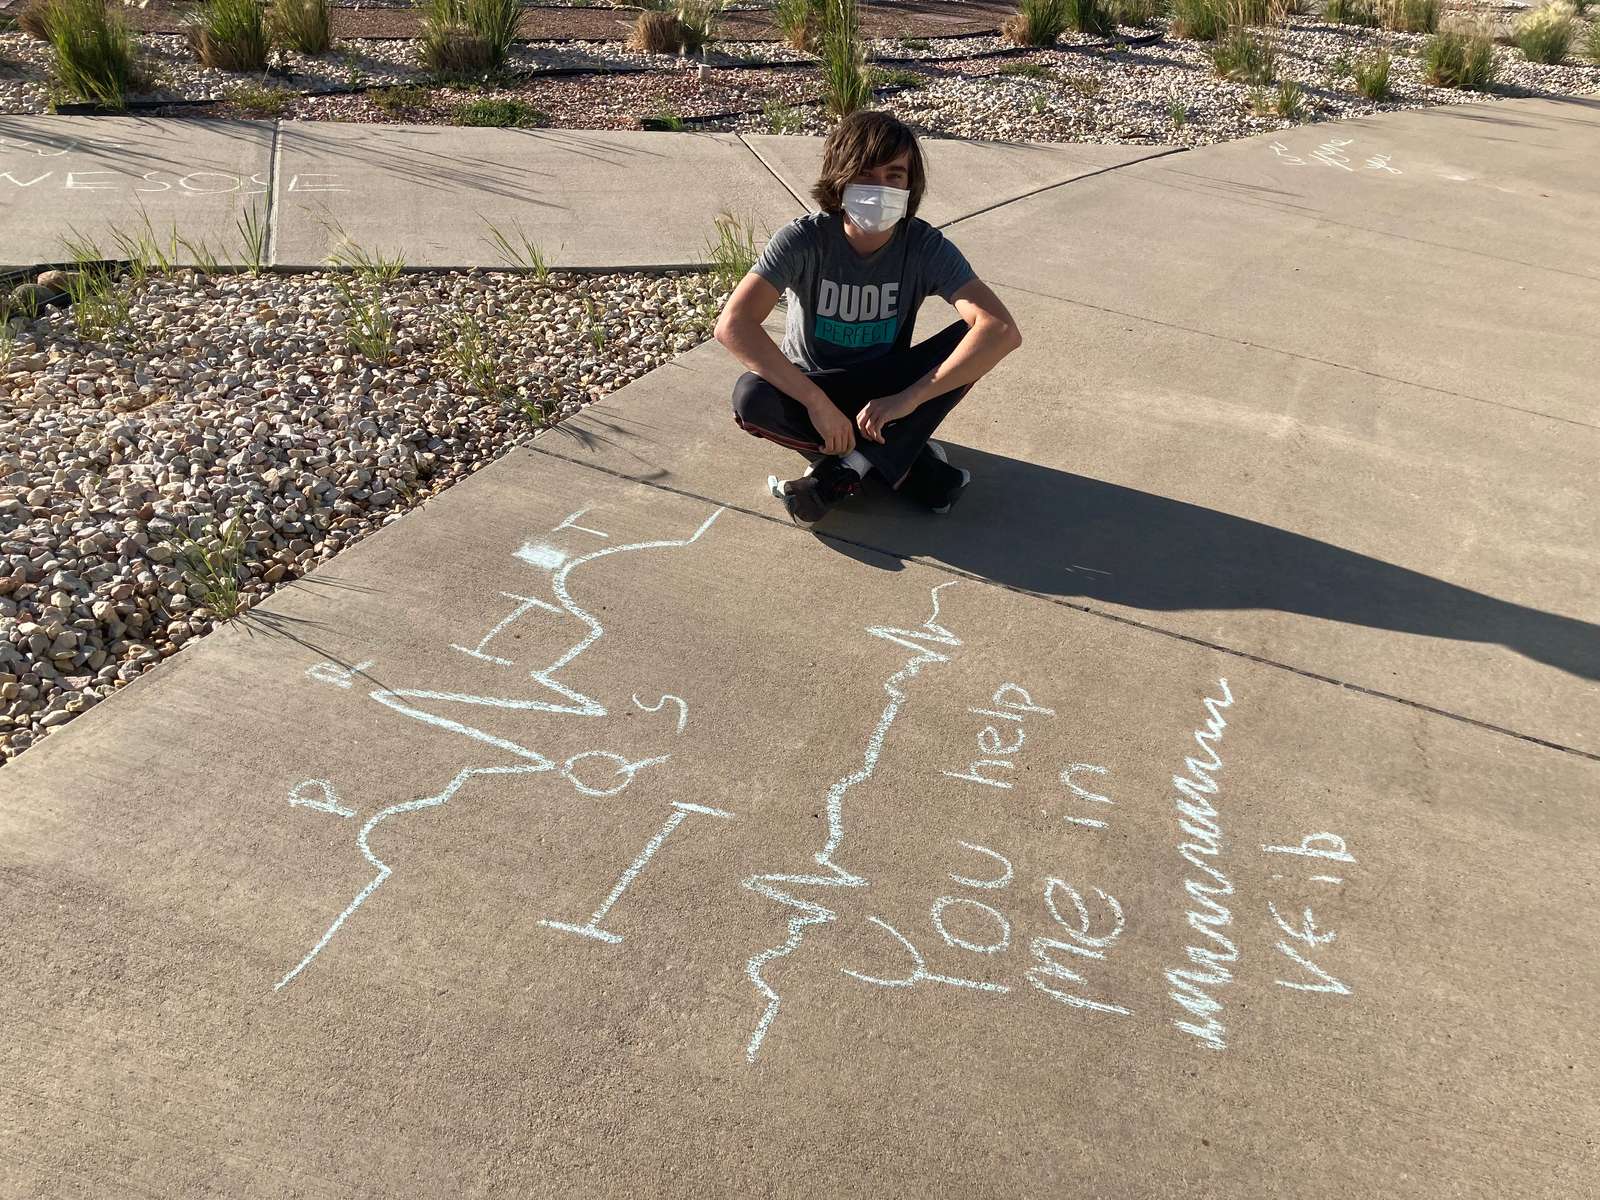 WESOSE
DUDE
PERFECT
P
R
Q
S
T
You help
me in
VFib